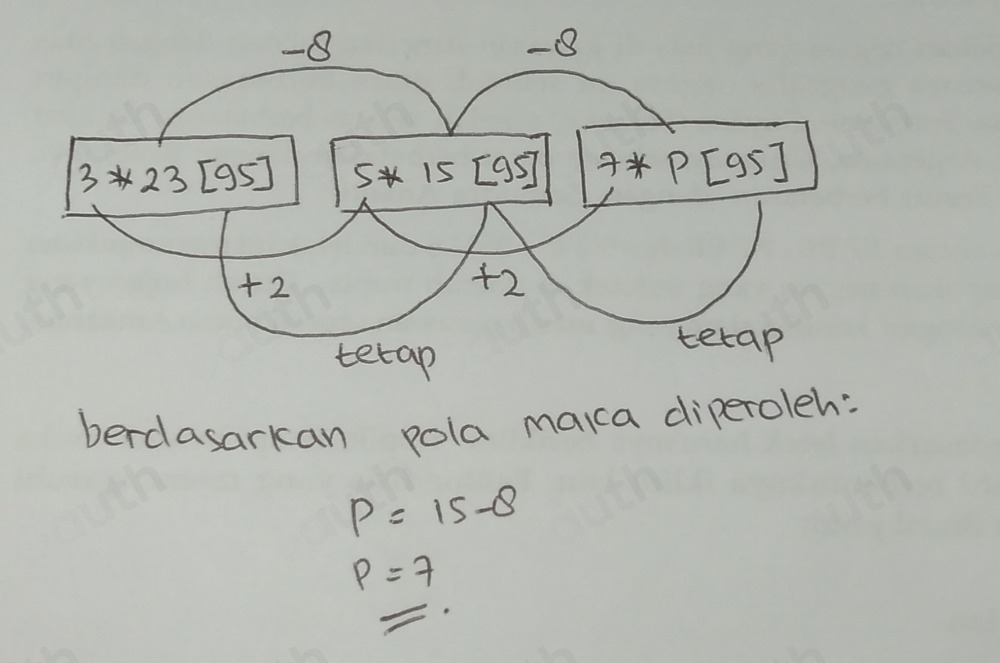 -8 -8
3*23 [95] 5* 15 [95] 7* P [95]
+2 +2
tetap tetap
berdasarkan pola maka diperoleh:
P = 15-8
P = 7